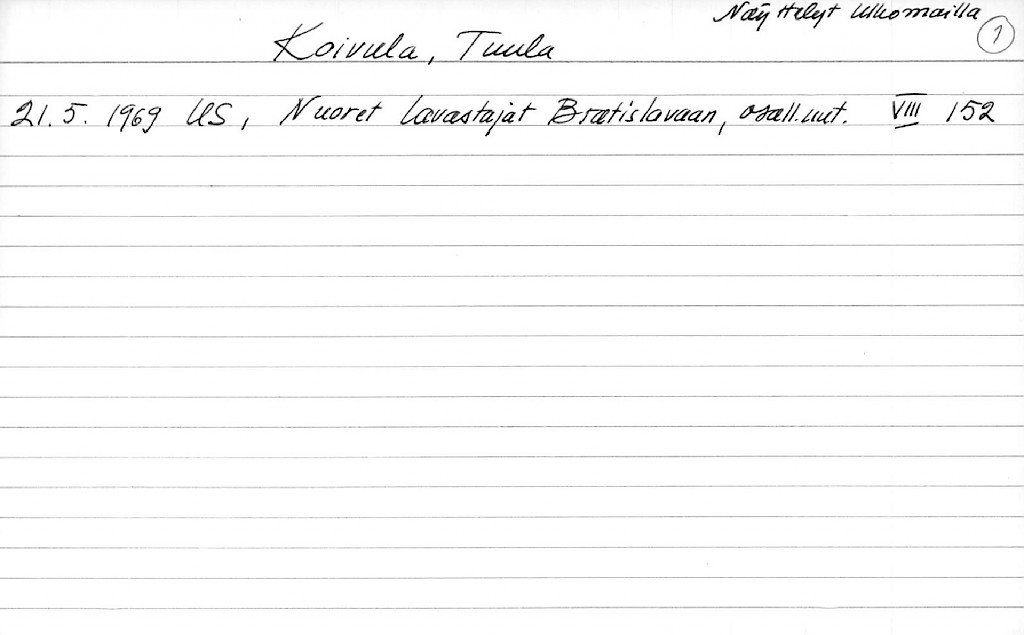 Näyttelyt ulkomailla
1
Koivula, Tuula
21.5. 1969 US, Nuoret lavastajat Bratislavaan, osall.uut. VIII 152